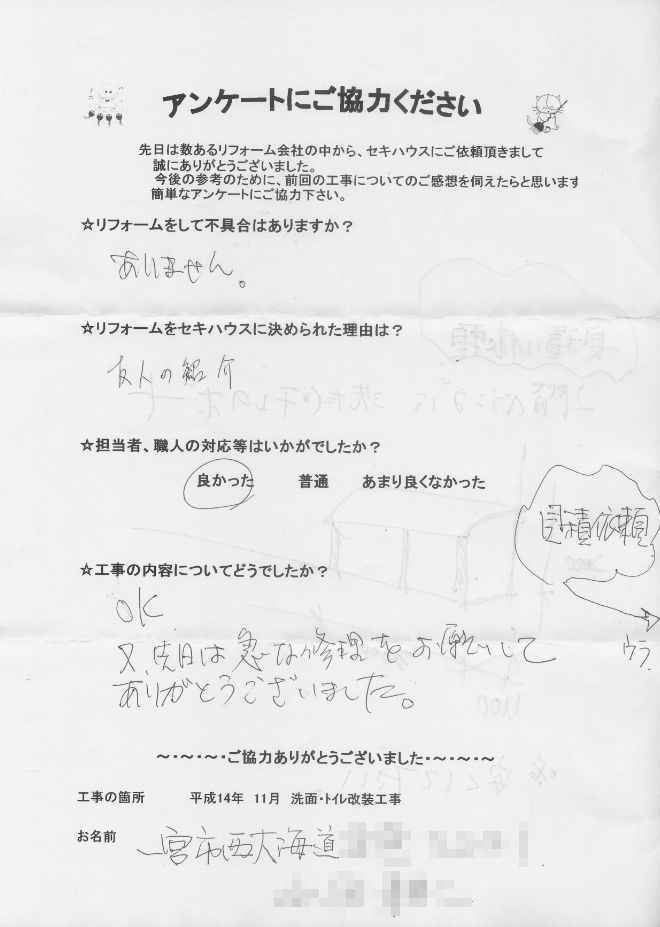 アンケートにご協力ください
先日は数あるリフォーム会社の中から、セキハウスにご依頼頂きまして
誠にありがとうございました。
今後の参考のために、前回の工事についてのご感想を伺えたらと思います
簡単なアンケートにご協力下さい。
☆リフォームをして不具合はありますか？
ありません。
☆リフォームをセキハウスに決められた理由は？
友人の紹介
☆担当者、職人の対応等はいかがでしたか？
良かった 普通 あまり良くなかった
見積依頼
ウラ
☆工事の内容についてどうでしたか？
OK
又、先日は急な修理をお願いして
ありがとうございました。
～・～・～・ご協力ありがとうございました・～・～・～
工事の箇所 平成14年 11月 洗面・トイレ改装工事
お名前 一宮市西大海道